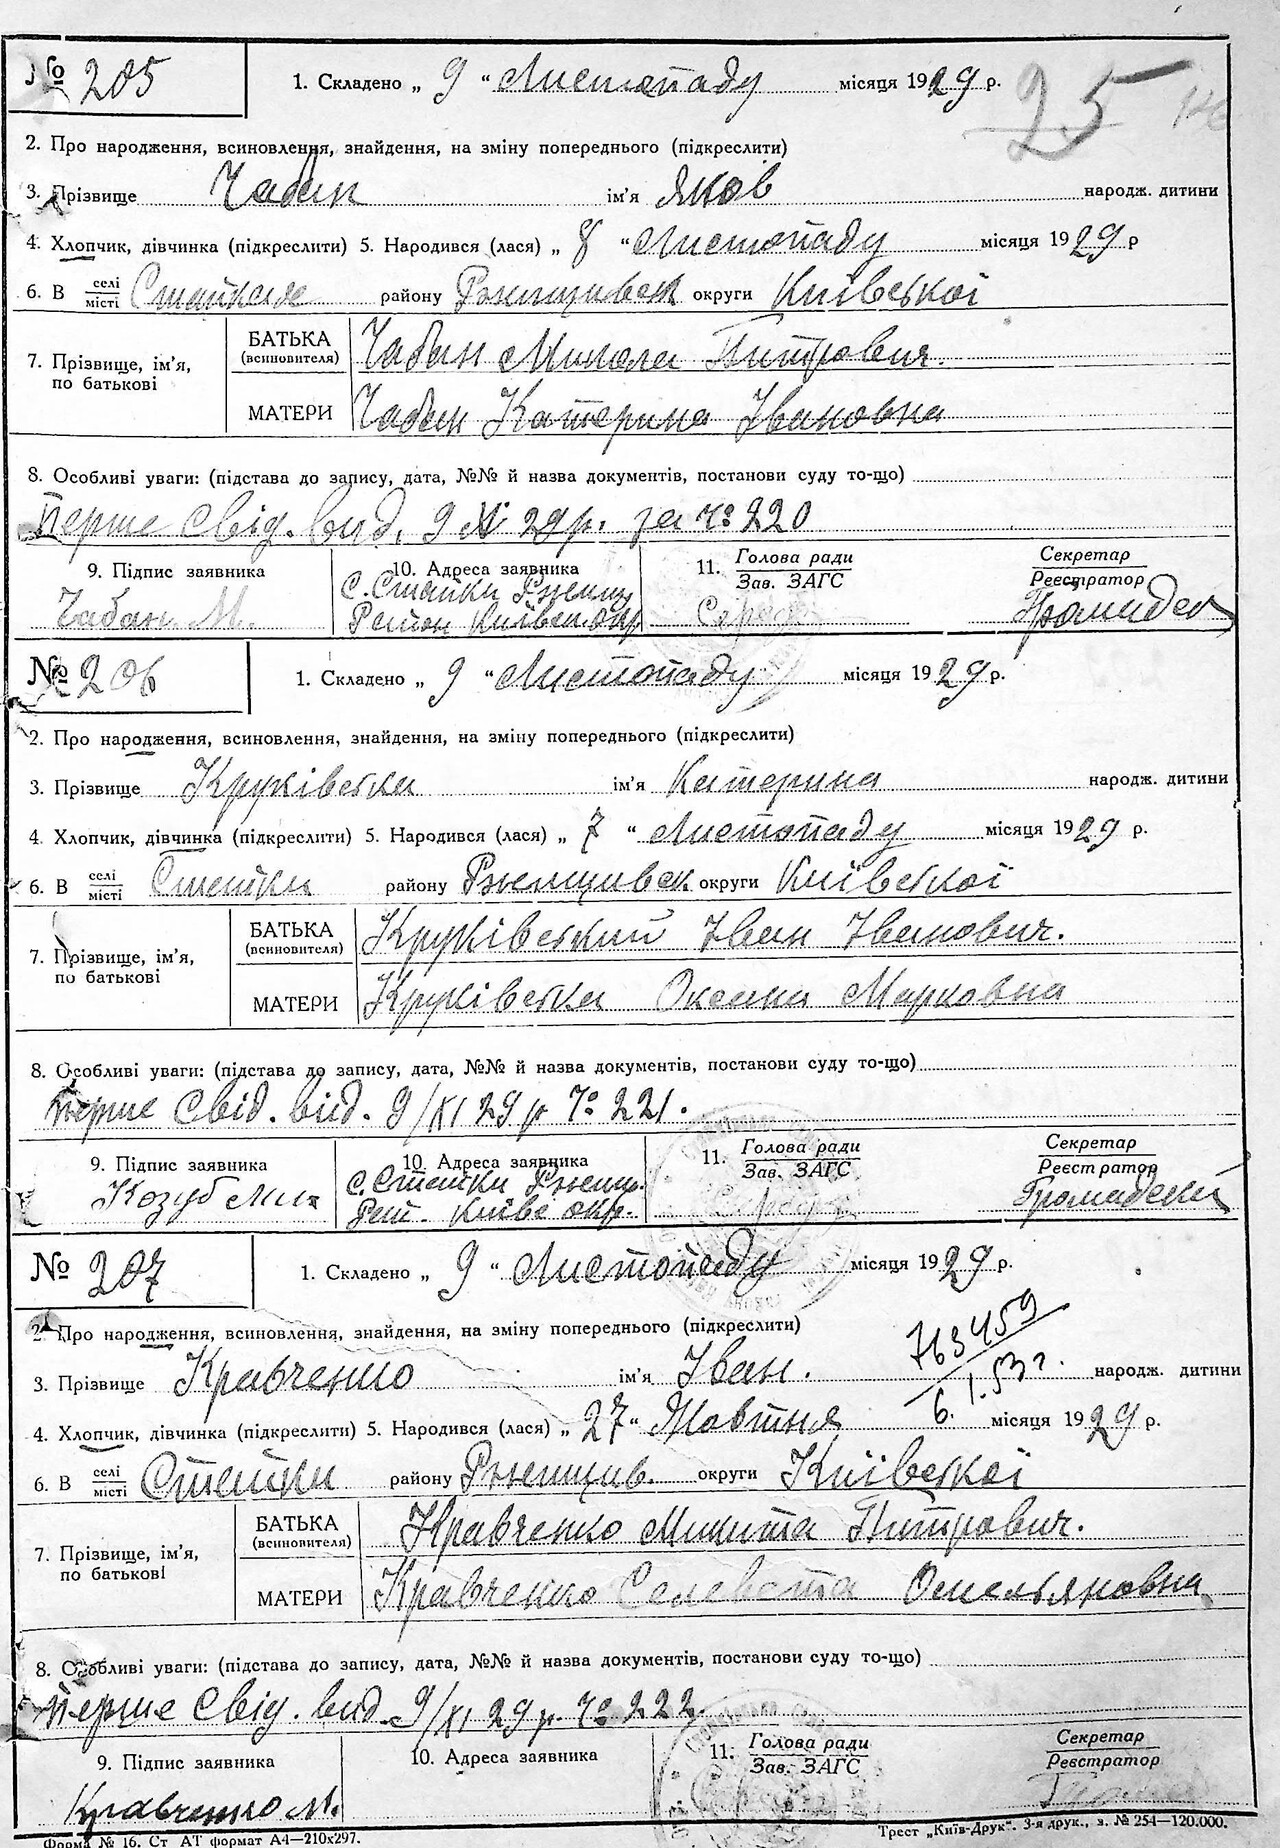 № 205 1. Складено „ 9 “ Листопаду місяця 1929 р. 25
2. Про народження, всиновлення, знайдення, на зміну попереднього (підкреслити)
3. Прізвище Чабан ім'я Яков народж. дитини
4. Хлопчик, дівчинка (підкреслити) 5. Народився (лася) „ 8 “ Листопаду місяця 1929 р
6. В селі/місті Стайках району Ржищивськ округи Київської
7. Прізвище, ім'я, по батькові БАТЬКА (всиновителя) Чабан Микола Питрович.
МАТЕРИ Чабан Катерина Івановна
8. Особливі уваги: (підстава до запису, дата, №№ й назва документів, постанови суду то-що)
перше Свід. вид. 9 XI 29 р. за № 220
9. Підпис заявника 10. Адреса заявника 11. Голова ради/Зав. ЗАГС Секретар/Реєстратор
Чабан М. с. Стайки Ржищ
Район Київськ. окр
№ 206 1. Складено „ 9 “ Листопаду місяця 1929 р.
2. Про народження, всиновлення, знайдення, на зміну попереднього (підкреслити)
3. Прізвище Круківська ім'я Катерина народж. дитини
4. Хлопчик, дівчинка (підкреслити) 5. Народився (лася) „ 7 “ Листопаду місяця 1929 р.
6. В селі/місті Стайки району Ржищивськ округи Київської
7. Прізвище, ім'я, по батькові БАТЬКА (всиновителя) Круківський Іван Іванович.
МАТЕРИ Круківська Оксана Марковна
8. Особливі уваги: (підстава до запису, дата, №№ й назва документів, постанови суду то-що)
перше Свід. вид. 9/XI 29 р № 221.
9. Підпис заявника 10. Адреса заявника 11. Голова ради/Зав. ЗАГС Секретар/Реєстратор
Козуб с. Стайки Ржищ.
Рай. Київс окр.
№ 207 1. Складено „ 9 “ Листопаду місяця 1929 р.
2. Про народження, всиновлення, знайдення, на зміну попереднього (підкреслити)
763459
6.1.53 г.
3. Прізвище Кравченко ім'я Іван. народж. дитини
4. Хлопчик, дівчинка (підкреслити) 5. Народився (лася) „ 27 “ Жовтня місяця 1929 р.
6. В селі/місті Стайки району Ржищив. округи Київської
7. Прізвище, ім'я, по батькові БАТЬКА (всиновителя) Кравченко Микита Питрович.
МАТЕРИ Кравченко Омельяновна
8. Особливі уваги: (підстава до запису, дата, №№ й назва документів, постанови суду то-що)
перше Свід. вид. 9/XI 29 р. № 222
9. Підпис заявника 10. Адреса заявника 11. Голова ради/Зав. ЗАГС Секретар/Реєстратор
Кравченко М.
Форма № 16. Ст АТ формат А4—210х297. Трест „Київ-Друк“. 3-я друк., з. № 254—120.000.